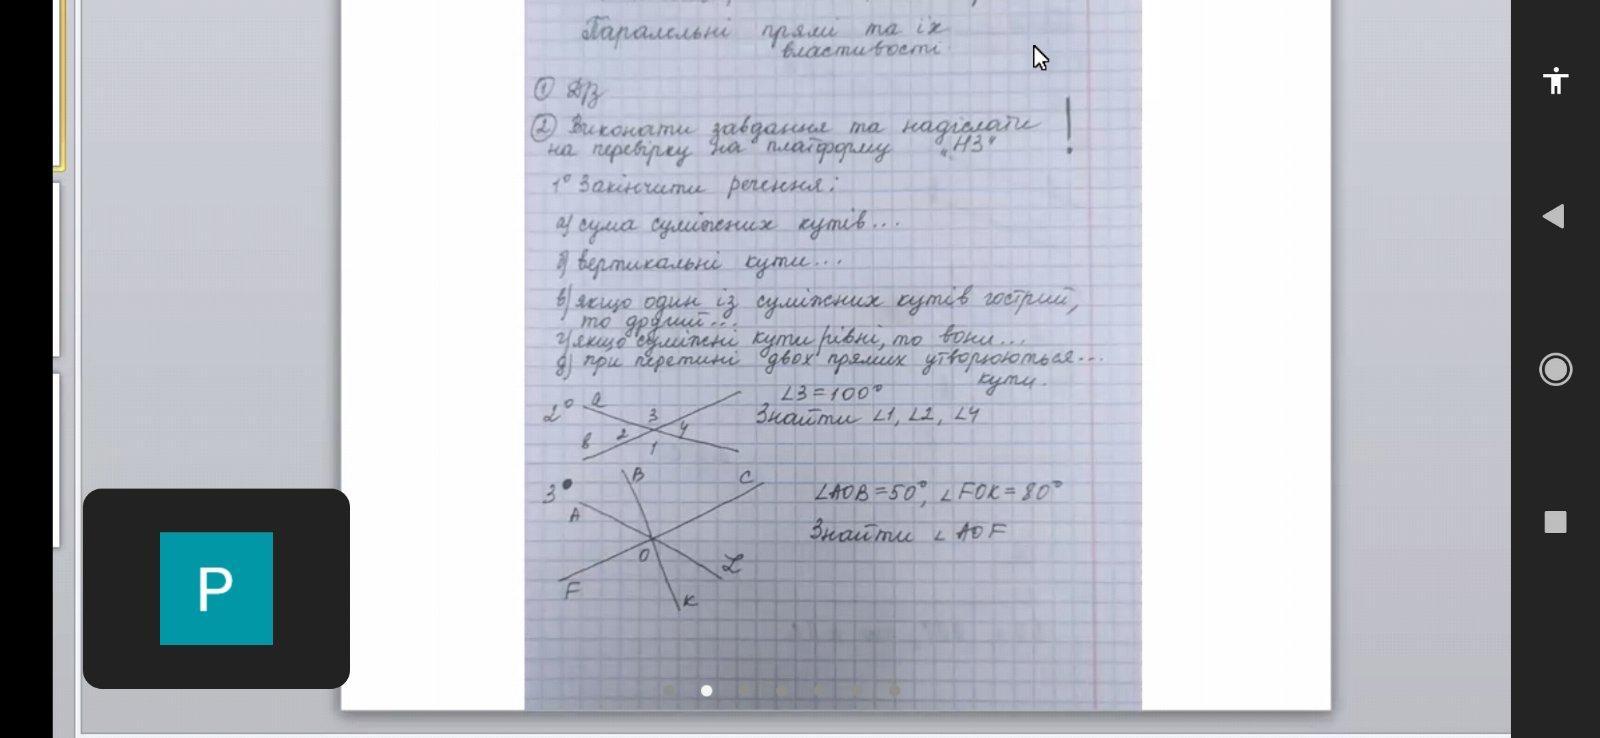 Паралельні прямі та їх
властивості
① ДЗ
② Виконати завдання та надіслати !
на перевірку на платформу „НЗ"
1° Закінчити речення:
а) сума суміжних кутів...
б) вертикальні кути...
в) якщо один із суміжних кутів гострий,
то другий...
г) якщо суміжні кути рівні, то вони...
д) при перетині двох прямих утворюються...
кути.
2° a 3 4 2 1 b
∠3=100°
Знайти ∠1, ∠2, ∠4
3° A B C O F K L
∠AOB=50°, ∠FOK=80°
Знайти ∠AOF
P